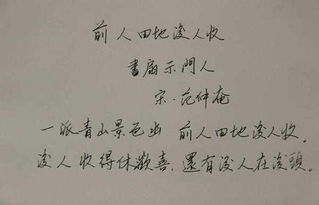 前人田地後人收
書扇示門人
宋·范仲淹
一派青山景色幽 前人田地後人收
後人收得休歡喜,還有後人在後頭。